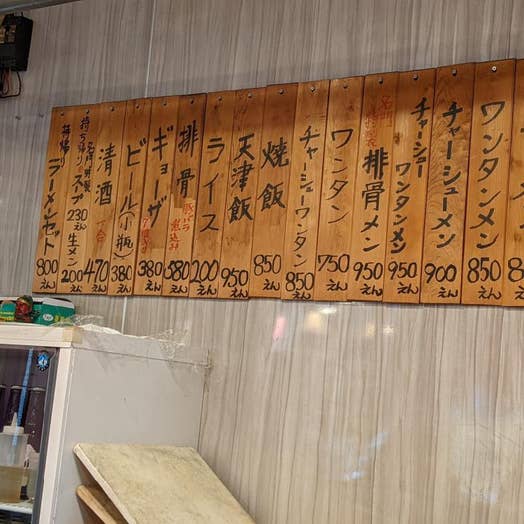 飯
ワンタンメン
850
えん
チャーシューメン
900
えん
チャーシュー
ワンタンメン
950
えん
名門
特製
排骨メン
950
えん
ワンタン
750
えん
チャーシューワンタン
850
えん
焼飯
850
えん
天津飯
950
えん
ライス
200
えん
排骨
豚バラ
煮込み
580
えん
ギョーザ
380
えん
ビール(小瓶)
380
えん
清酒
一合
470
えん
持ち帰り
スープ
230
えん
生メン
200
えん
ラーメンセット
800
えん